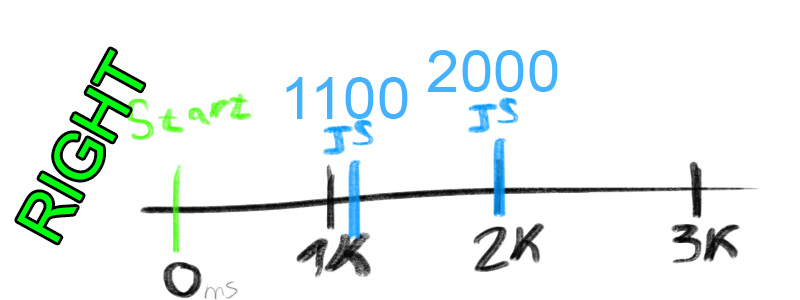 RIGHT
Start
1100
JS
2000
JS
0ms
1K
2K
3K